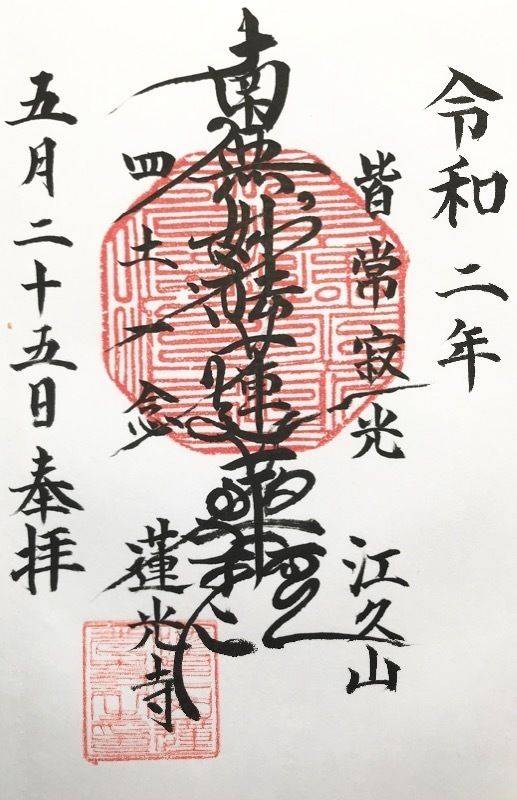 令和二年
皆常寂光
江久山
南無妙法蓮華経
四土一念
蓮光寺
五月二十五日奉拝